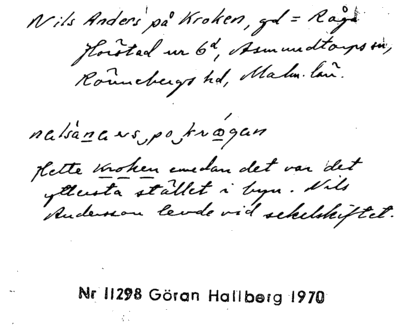 Nils Anders' på Kroken, gd = Råga
Hörstad nr 6ᵈ, Asmundtorps sn,
Rönnebergs hd, Malm. län.
nalsanars, po, krǫ́gan
Hette Kroken emedan det var det
yttersta stället i byn. Nils
Andersson levde vid sekelskiftet.
Nr 11298 Göran Hallberg 1970